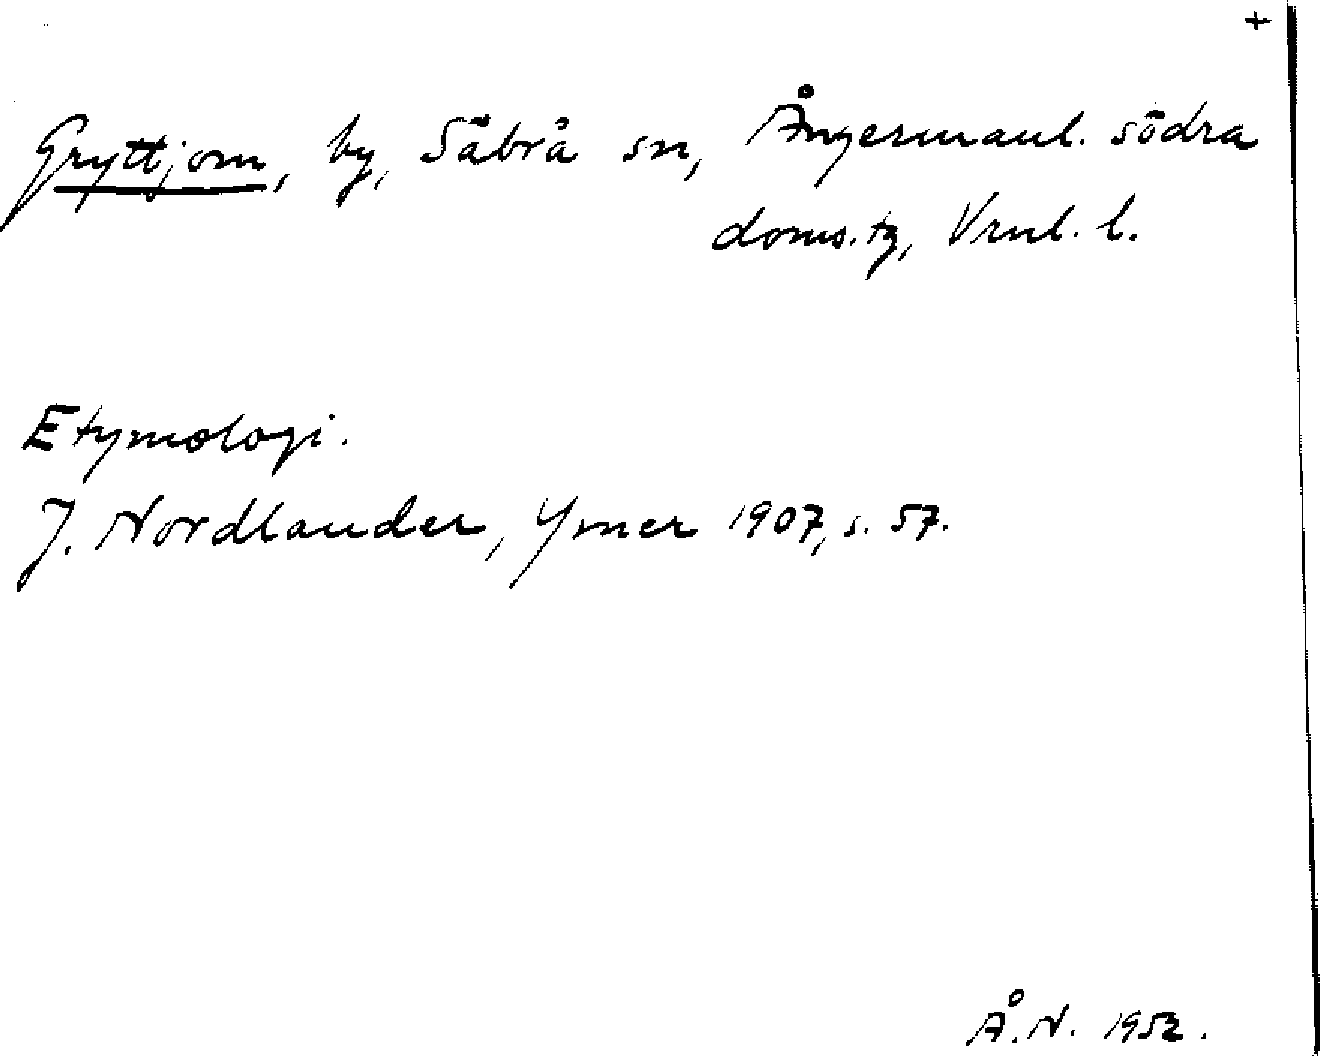 +
Gryttjom, by, Säbrå sn, Ångermanl. södra
doms.tg, Vrnl. l.
Etymologi.
J. Nordlander, Ymer 1907, s. 57.
Å.N. 1952.